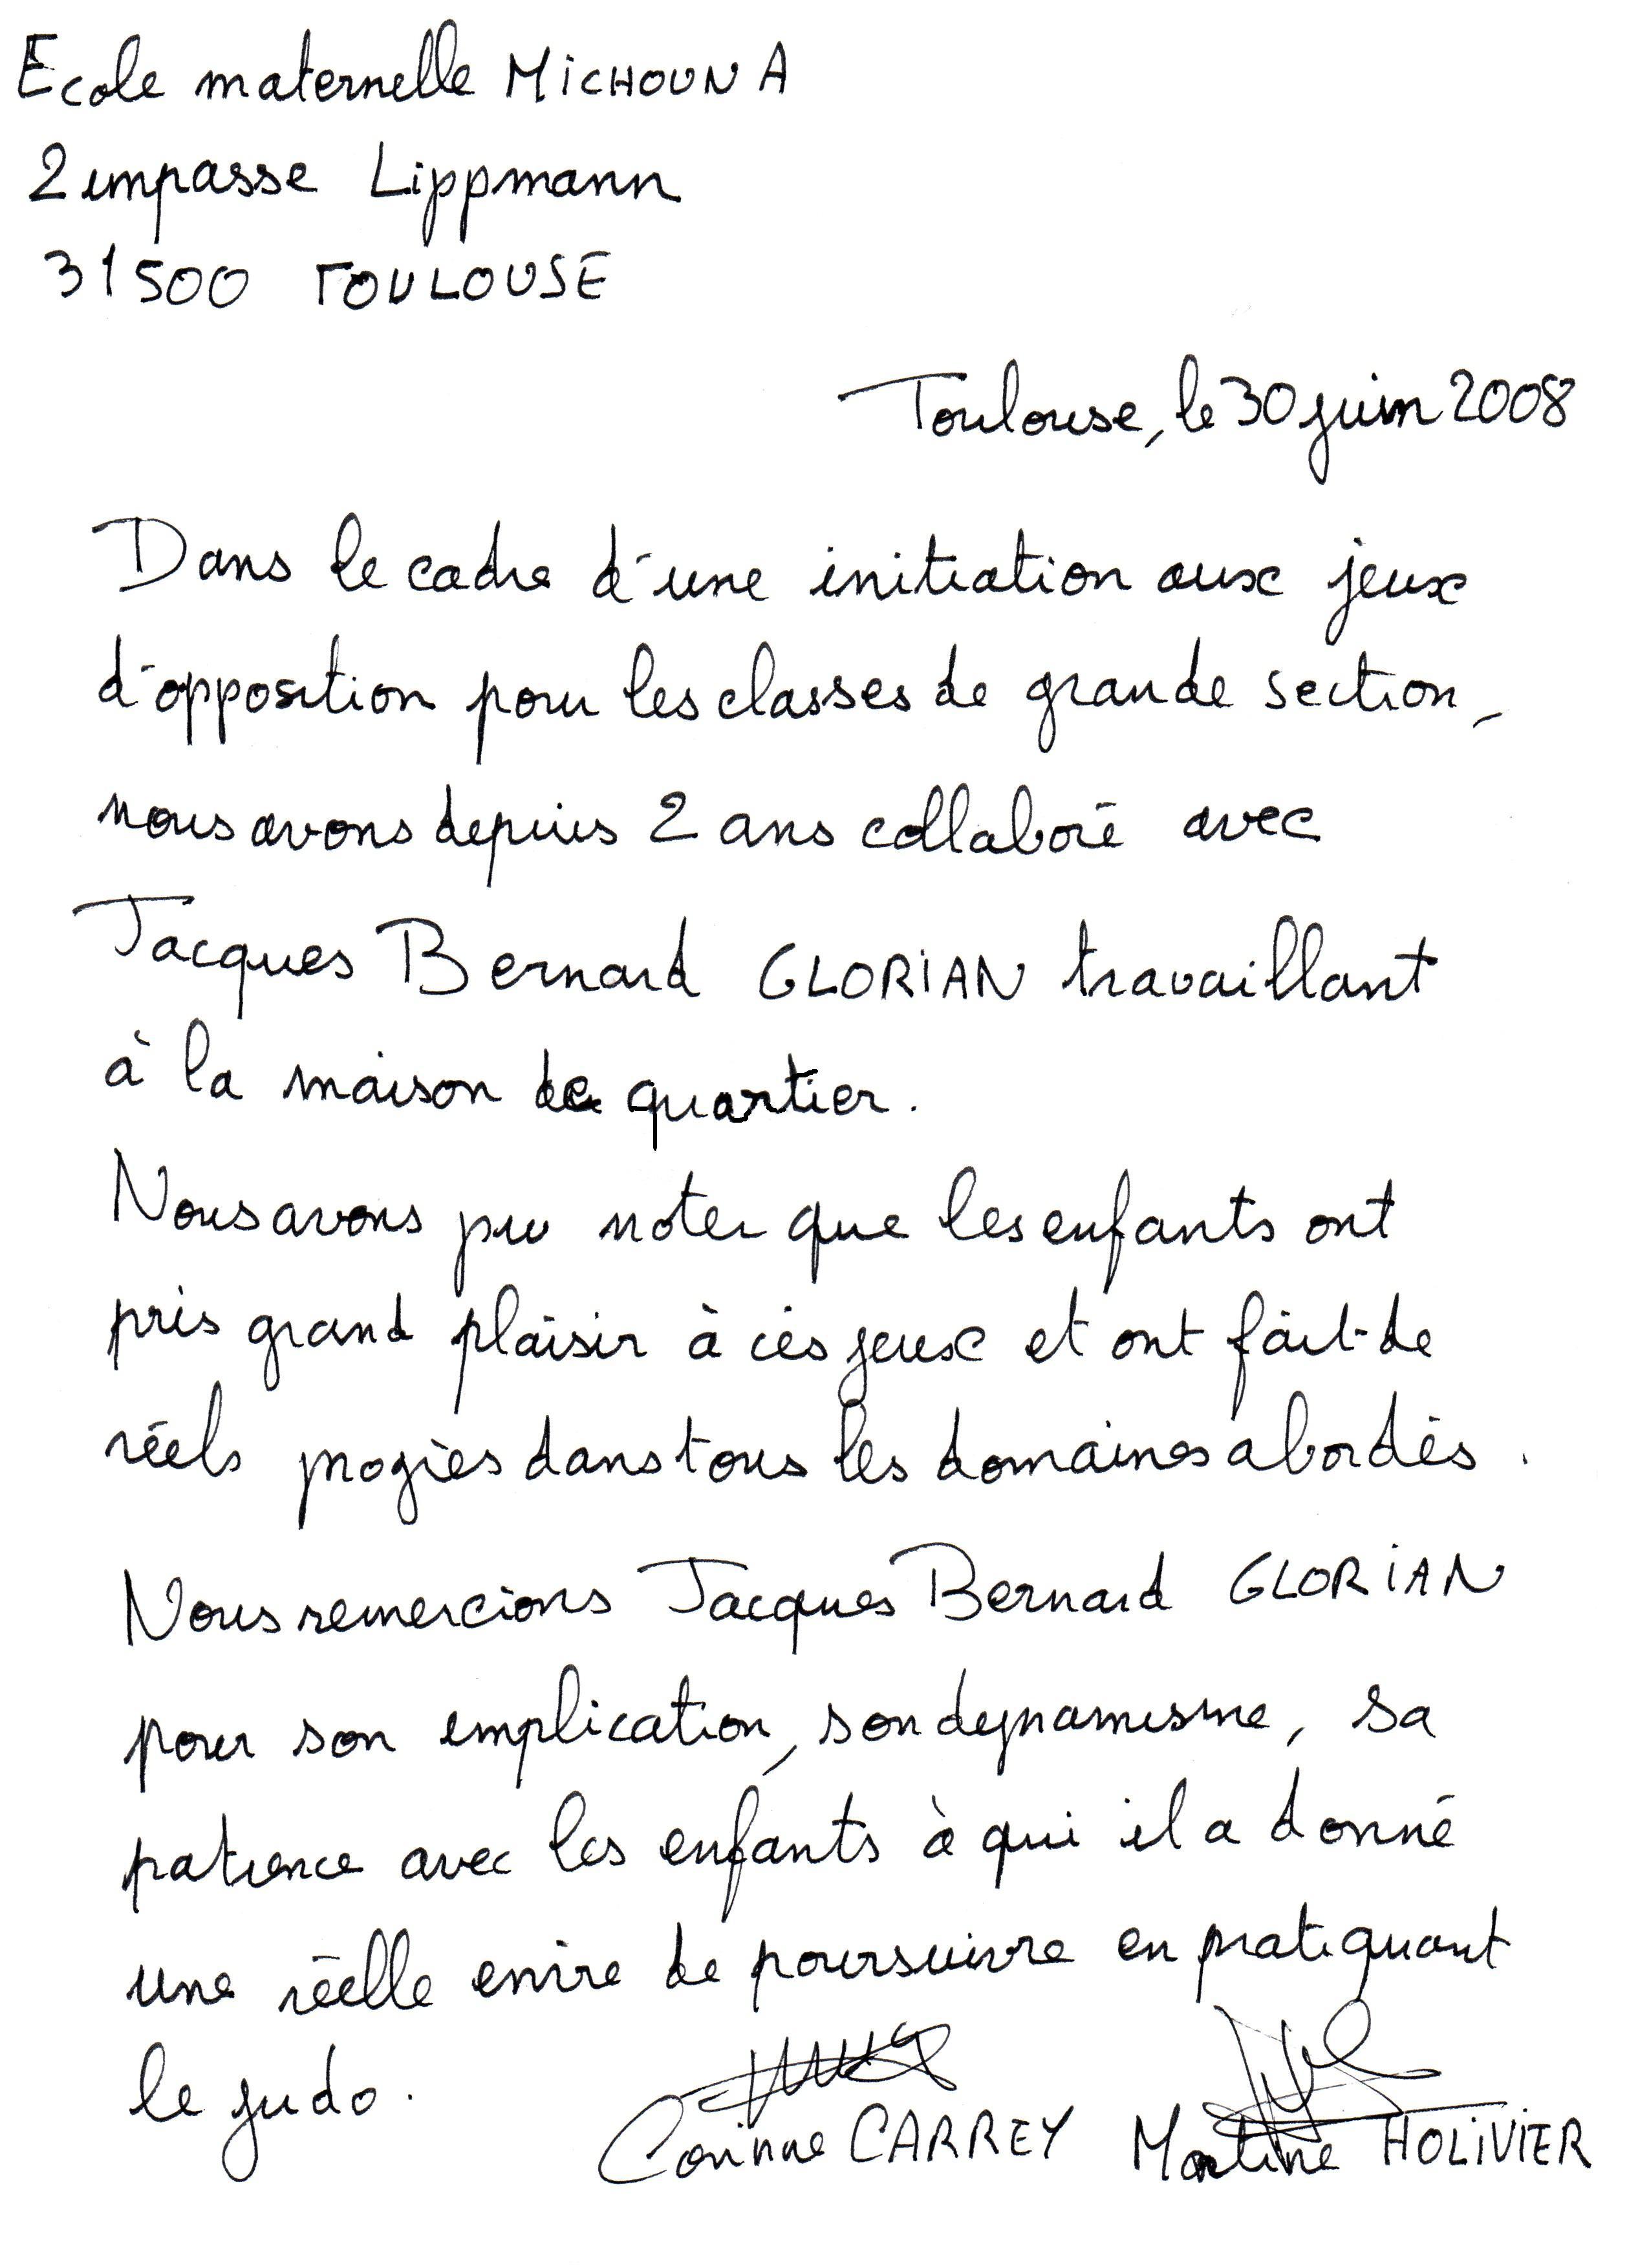 Ecole maternelle MICHOUNA
2 impasse Lippmann
31500 TOULOUSE
Toulouse, le 30 juin 2008
Dans le cadre d'une initiation aux jeux
d'opposition pour les classes de grande section,
nous avons depuis 2 ans collaboré avec
Jacques Bernard GLORIAN travaillant
à la maison de quartier.
Nous avons pu noter que les enfants ont
pris grand plaisir à ces jeux et ont fait de
réels progrès dans tous les domaines abordés.
Nous remercions Jacques Bernard GLORIAN
pour son implication, son dynamisme, sa
patience avec les enfants à qui il a donné
une réelle envie de poursuivre en pratiquant
le judo.
Corinne CARREY Martine HOLIVIER